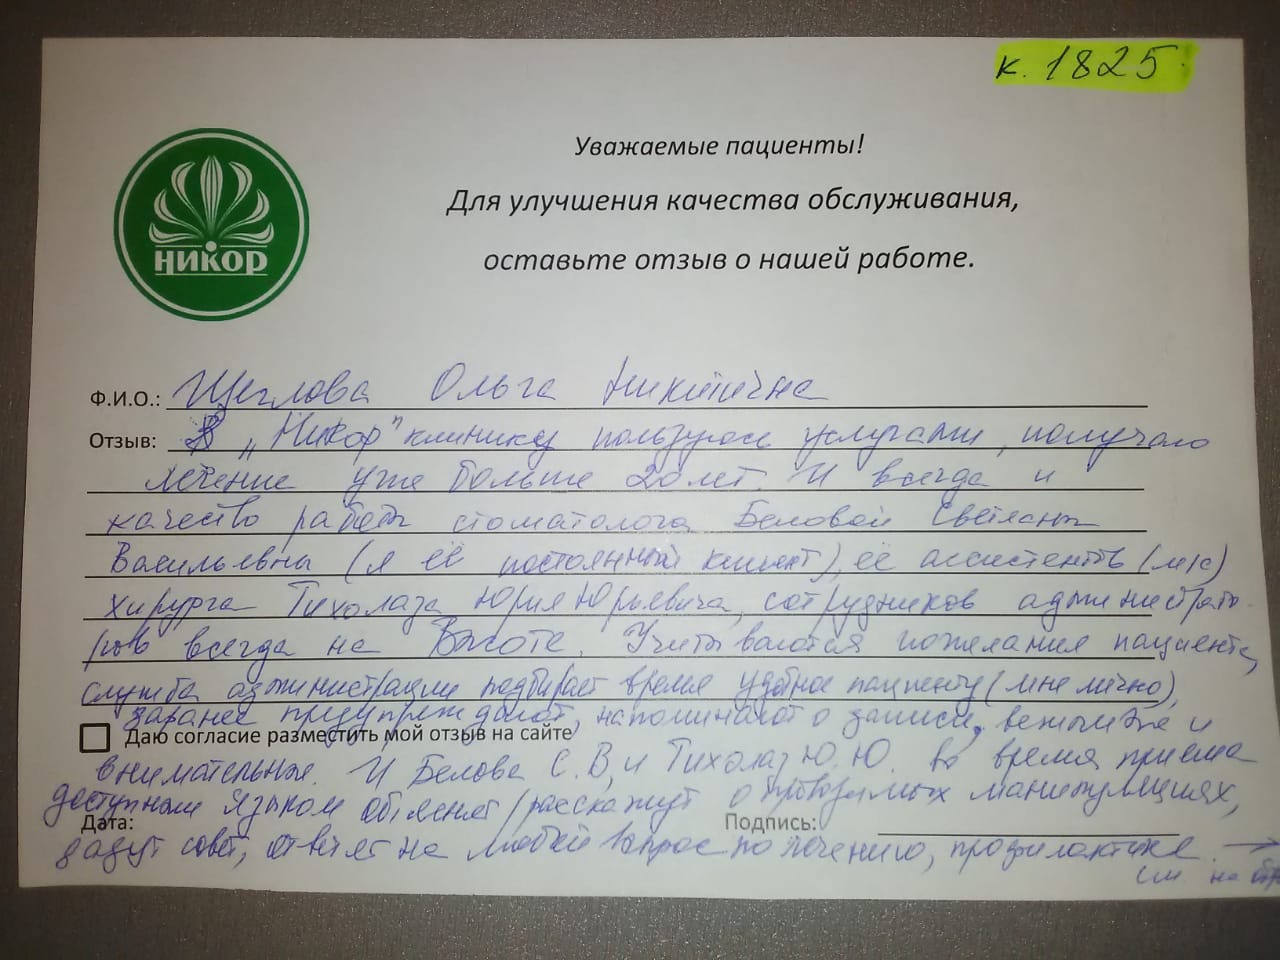 к. 1825
Уважаемые пациенты!
Для улучшения качества обслуживания,
оставьте отзыв о нашей работе.
НИКОР
Ф.И.О.: Щеглова Ольга Никитична
Отзыв: В „Никор" клинике пользуюсь услугами, получаю
лечение уже больше 20 лет. И всегда и
качество работы стоматолога Беловой Светланы
Васильевны (я её постоянный клиент), её ассистентов (м/с)
хирурга Тихолаза Юрия Юрьевича, сотрудников администрато-
ров всегда на Высоте. Учитываются пожелания пациента,
служба администрации подбирает время удобное пациенту (мне лично),
заранее предупреждают, напоминают о записи, вежливые и
Даю согласие разместить мой отзыв на сайте
внимательные. И Белова С.В, и Тихолаз Ю.Ю. во время приема
доступным языком объяснят/расскажут о проводимых манипуляциях,
Дата: Подпись:
дадут совет, ответят на любой вопрос по лечению, профилактике. →
см. на